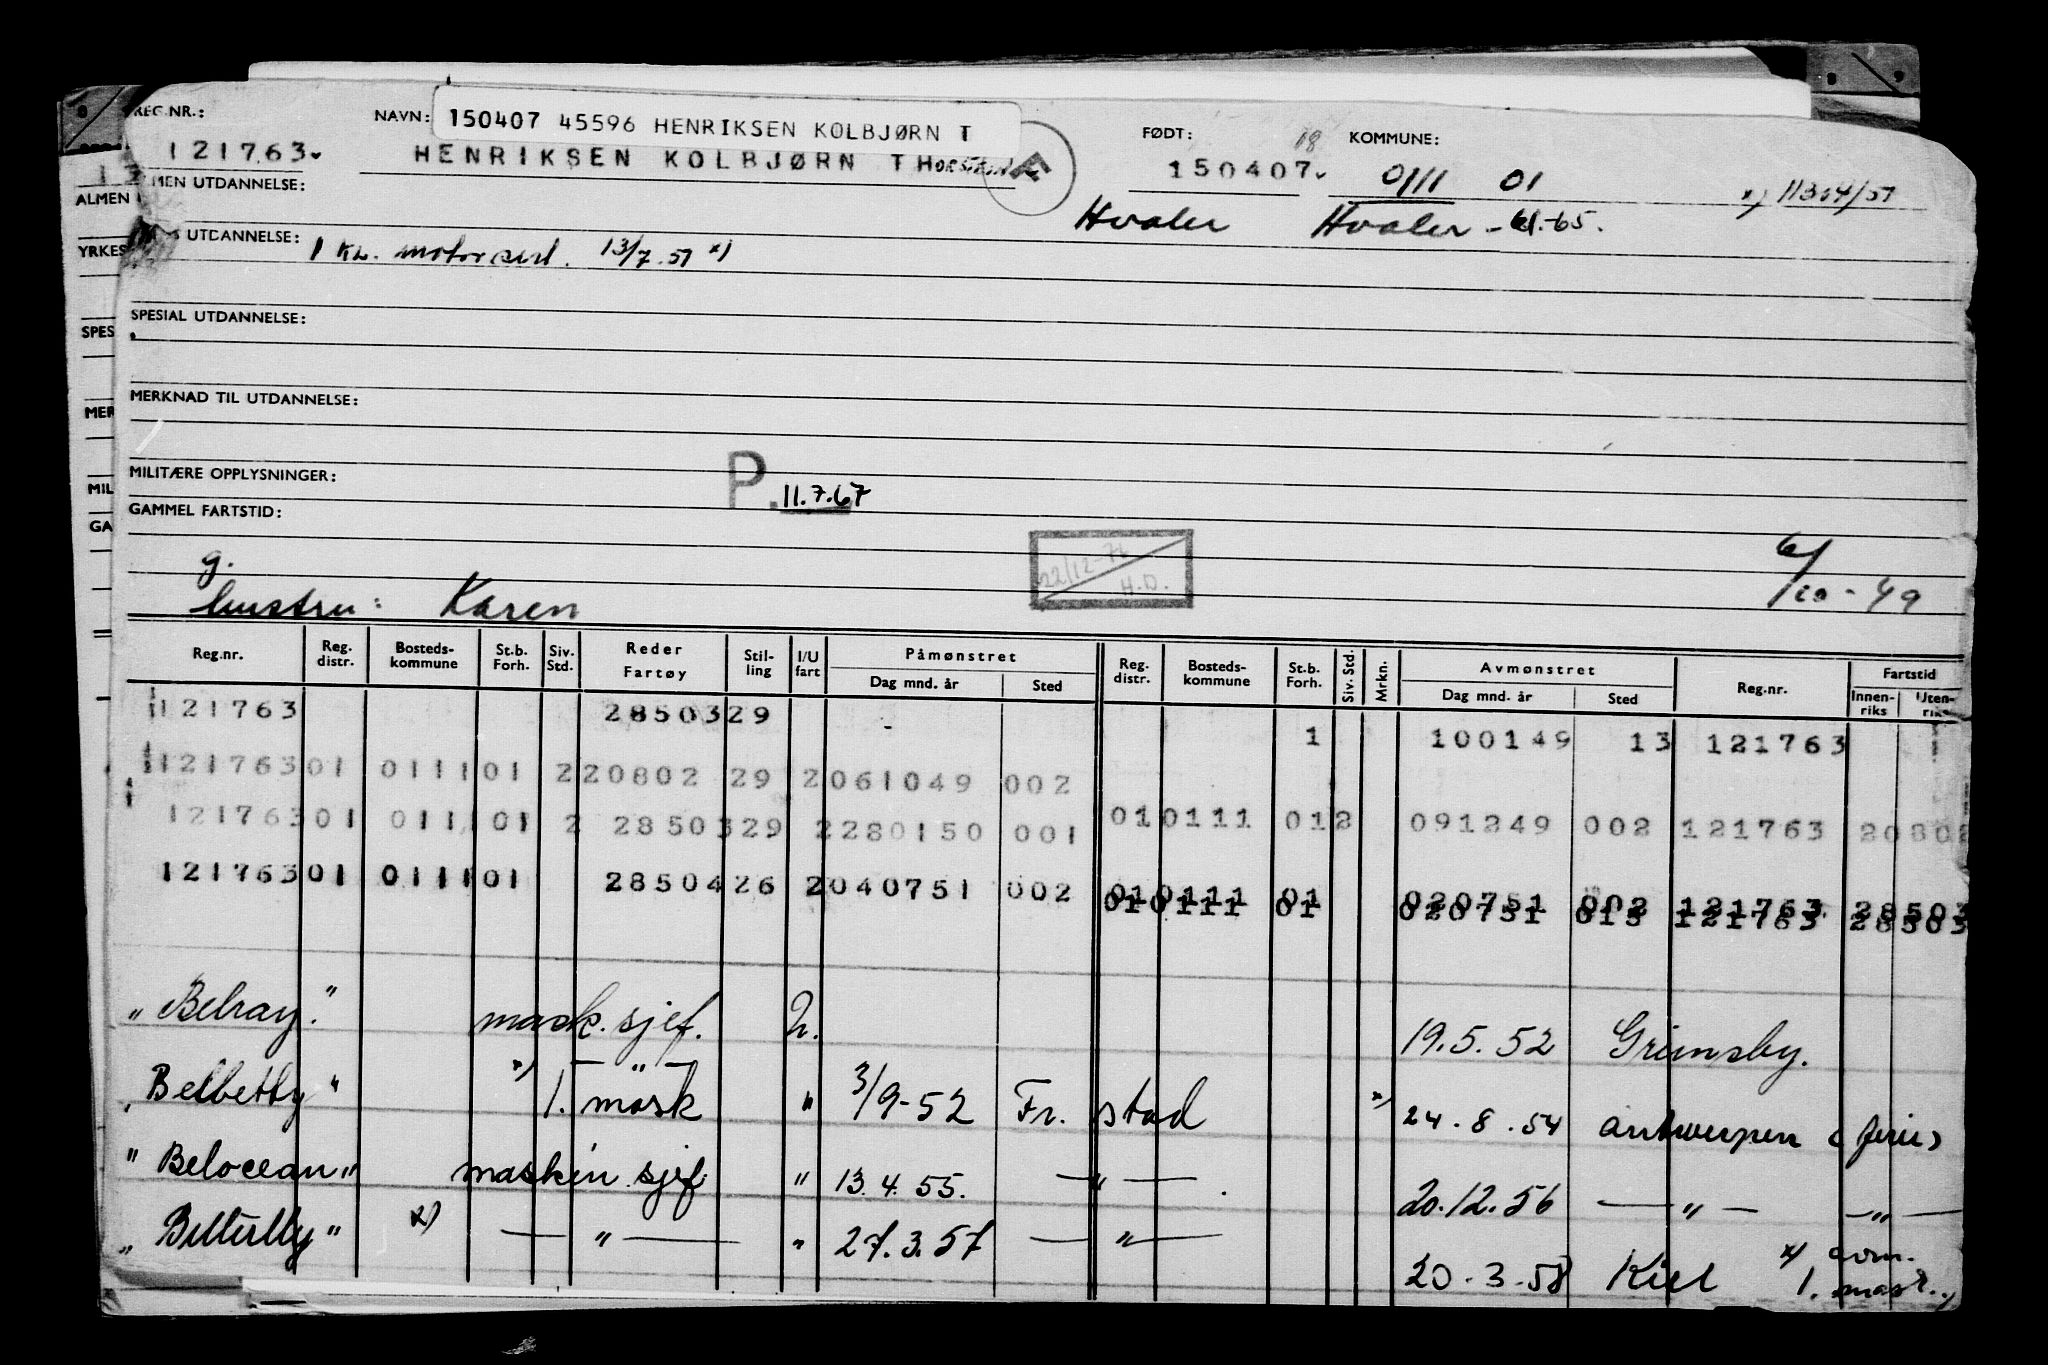 REG.NR.: NAVN: 150407 45596 HENRIKSEN KOLBJØRN T FØDT: 18 KOMMUNE:
121763 HENRIKSEN KOLBJØRN THORSTEIN F 150407 0111 01 x) 11304/57
ALMEN MEN UTDANNELSE: Hvaler Hvaler - 61.-65.
YRKES UTDANNELSE: 1 KL. motorsert. 13/7.57 x)
SPES SPESIAL UTDANNELSE:
MER MERKNAD TIL UTDANNELSE:
MIL MILITÆRE OPPLYSNINGER: P. 11.7.67
GA GAMMEL FARTSTID:
22/12-71 H.O.
g. 6/10-49
hustru: Karen
Reg.nr. Reg. distr. Bosteds-kommune St.b. Forh. Siv. Std. Reder Fartøy Stil-ling I/U fart Påmønstret Dag mnd. år Sted Reg. distr. Bosteds-kommune St.b. Forh. Siv. Std. Mrkn. Avmønstret Dag mnd. år Sted Reg.nr. Fartstid Innen-riks Uten-riks
121763 28503 29 1 100149 13 121763
121763 01 0111 01 2 20802 29 2 061049 002 01 0111 01 2 091249 002 121763 20802
121763 01 0111 01 2 28503 29 2 280150 001 01 0111 01 020751 002 121763 28503
121763 01 0111 01 28504 26 2 040751 002 01 0111 01 020751 013 121763 28503
"Belray." mask. sjef. 2. 19.5.52 Grimsby.
"Belbetty" x) — " — 1. mask " 3/9-52 Fr. stad x) 24.8.54 Antwerpen (ferie)
"Belocean" maskin sjef " 13.4.55. — " — 20.12.56 — " — — " —
" x) — " — " 27.3.57 — " — 20.3.58 Kiel x) avm. 1. mask.